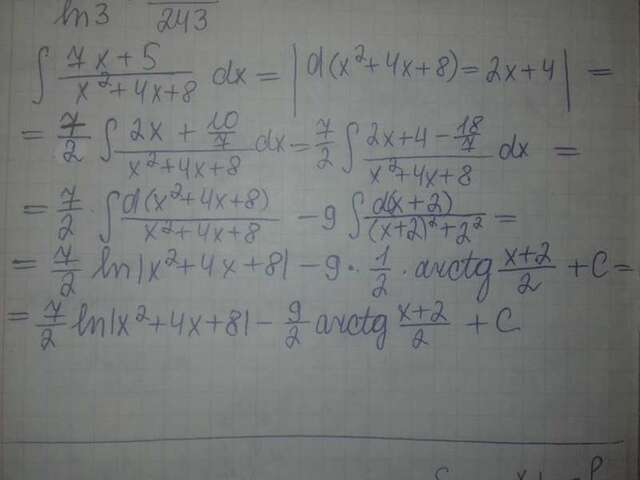 ln3 243
∫ (7x+5)/(x²+4x+8) dx = |d(x²+4x+8) = 2x+4| =
= 7/2 ∫ (2x + 10/7)/(x²+4x+8) dx = 7/2 ∫ (2x+4 - 18/7)/(x²+4x+8) dx =
= 7/2 · ∫ d(x²+4x+8)/(x²+4x+8) - 9 ∫ d(x+2)/((x+2)²+2²) =
= 7/2 ln|x²+4x+8| - 9 · 1/2 · arctg (x+2)/2 + C =
= 7/2 ln|x²+4x+8| - 9/2 arctg (x+2)/2 + C